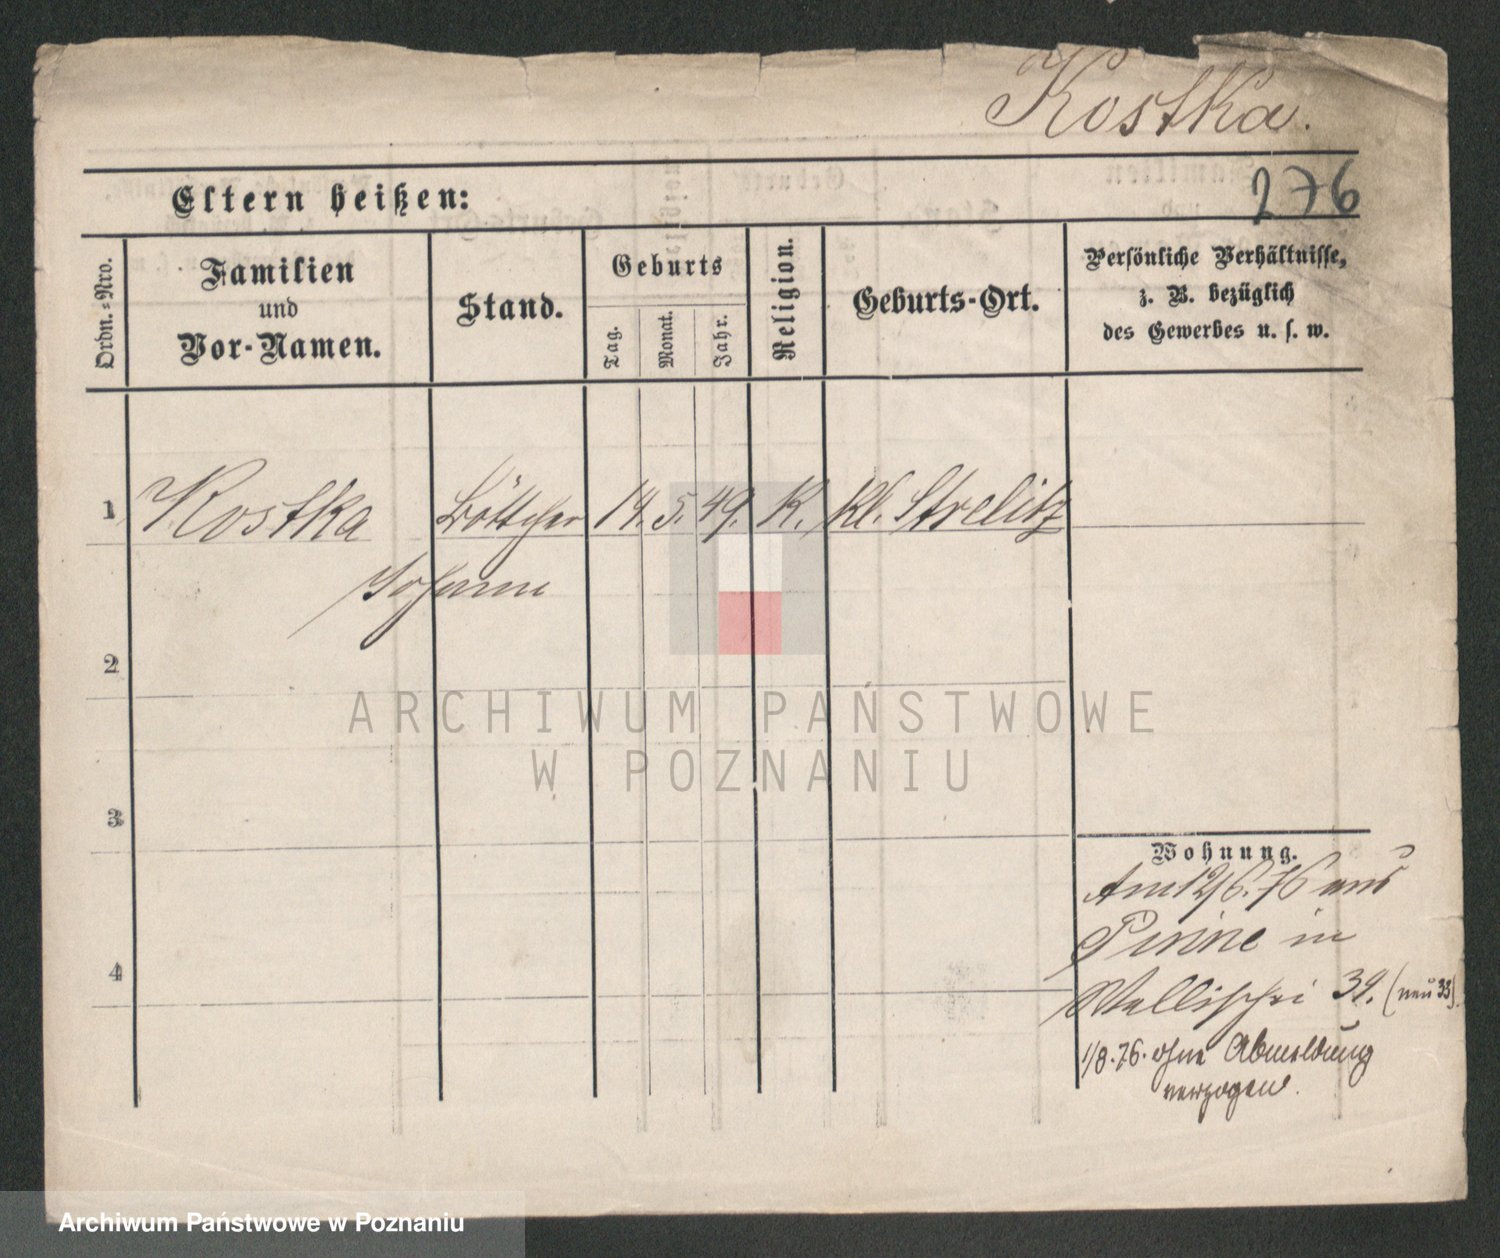 Kostka.
276
Eltern heißen:
Ordn.-Nro.
Familien
und
Vor-Namen.
Stand.
Geburts
Tag.
Monat.
Jahr.
Religion.
Geburts-Ort.
Persönliche Verhältnisse,
z. B. bezüglich
des Gewerbes u. s. w.
1 Kostka Böttcher 14. 5. 49. K. Kl. Strelitz
Johann
2
3
4
Wohnung.
Am 12/6. 76 aus
Pinne in
Wallischei 39. (neu 33).
1/8. 76. ohne Abmeldung
verzogen.
ARCHIWUM PAŃSTWOWE
W POZNANIU
Archiwum Państwowe w Poznaniu